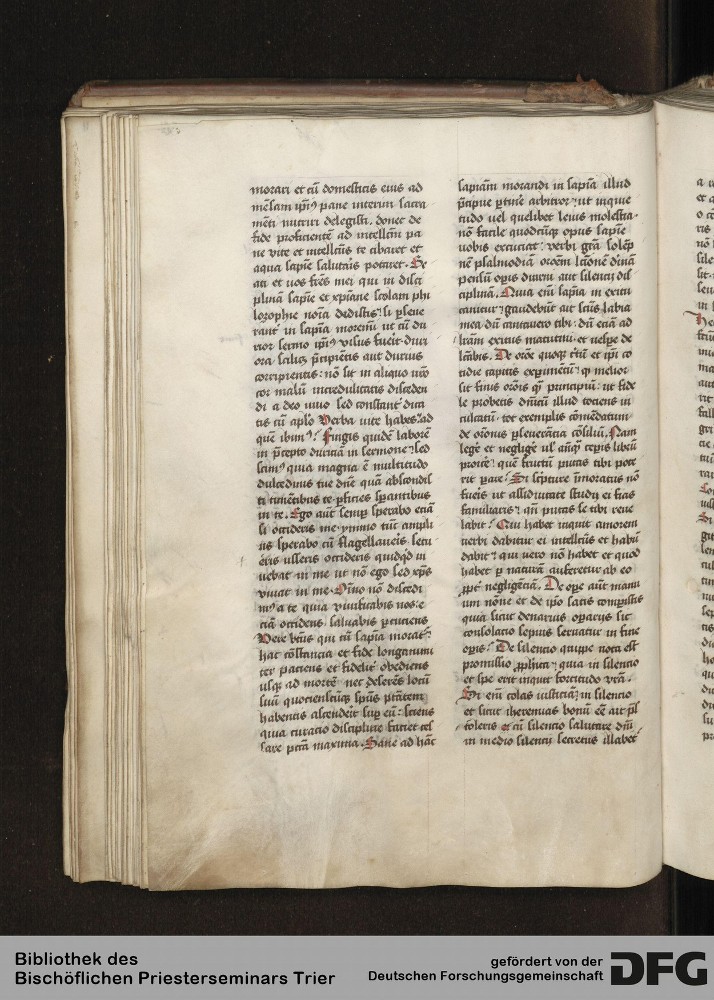 morari et cū domesticis eius ad
mēsam ip̄iꝰ pane interim lacrā
mēti nutriri delegisti. donec de
fide proficientē ad intellm̄ pa
ne vite et intellctūs te cibaret et
aqua sapīe salutaris potaret. Be
ati et uos frēs mei qui in disci
plinā sapīe et xp̄iane scolam phi
losophie noīa dedistis: si p̲seue
rant in sapīa morem̄ ut cū du
rior sermo ip̄iꝰ visus fuerit duri
ora scilicꝫ p̄cipiētis aut durius
corripientis: nō sit in aliquo ur̄m
cor malū incredulitatis disceden
di a deo uiuo sed constant̄ dica
tis cū apl̄o Verba uite habes: ad
quē ibimꝰ? Fingis quidē laborē
in p̄cepto duriciā in sermone: sed
scimꝰ quia magna ē multitudo
dulcedinis tue dn̄e quā abscondis
ti timētibus te. p̲ficies sp̲antibus
in te. Ego aūt semp̲ sperabo etiā
si occideris me. ymmo tūc ampli
us sperabo cū flagellaueris secu
eris usseris occideris quidq̄d in
uebat in me ut nō ego sed xp̄s
viuat in me. Om̄īno nō discedi
mꝰ a te quia viuificabis nos: e
ciā occidens saluabis p̲cuciens
Vere btūs qui cū sapīa morat᷑
hac cōstancia et fide longanimi
ter paciens et fidelit᷑ obediens
usq̲ꝫ ad mortē nec deserēs locū
suū quociensciūqꝫ sp̄us p̄tātem
habentis ascenderit sup̲ eū: sciens
quia curatio discipline faciet ces
sare pcc̄a maxima. Sane ad hāc
sapiam morandi in sapīa illud
p̄cipue p̲tinē arbitror: ut inquie
tudo uel quelibet leuis molestia
nō facile quodcūqꝫ opus sapīe
uobis excuciat: verbi grā solēp
nē psalmodiā oroēm lcc̄onē diuīnā
pensū op̲is diurni aut silencij dis
ciplinā. Quia eīm sapīa in exitu
canitur: gaudebūt ait sc̄ius labia
mea dū cantauero tibi: dū eciā ad
stram exitus matutini. et uesp̲e de
lc̄abis. De oroē quoqꝫ c̄tū et ip̄i co
tidie capitis exp̲imētū: qꝫ melior
sit finis orōis qꝫ principiū: ut fide
le probetis dn̄icū illud tociens in
culcatū. tot exemplis cōmēdatum.
de orōnis p̲seuerācia cōsiliū. Nam
legē et neglige ul̄ an̄qꝫ cep̲is libiū
proicē: quē fructū putas tibi pote
rit p̲are? Si sc̄pture īmoratus nō
fueis ut assiduitate studij ei fias
familiaris: qn̄ putas se tibi reue
labit? Qui habet inquit amorem
uerbi dabitur ei intellctūs et habū
dabit: qui uero nō habet et quod
habet p̲ naturā auferetur ab eo
ꝓpt̄ negligēciā. De ope aūt manu
um nōne et de ip̄o satis comp̲istis
quia sicut denarius op̲arijs sic
consolacio sepius seruatur in fine
op̲is? De silencio quippe nota est
promissio ꝓphica: quia in silencio
et spe erit inquit fortitudo vr̄a.
Si eīm colas iusticiā in silencio
et sicut iheremias bonū eē ait p̄s
tōleris et cū silencio salutare dn̄i
in medio silencij secretus illabet᷑
Bibliothek des
Bischöflichen Priesterseminars Trier
gefördert von der
Deutschen Forschungsgemeinschaft
DFG